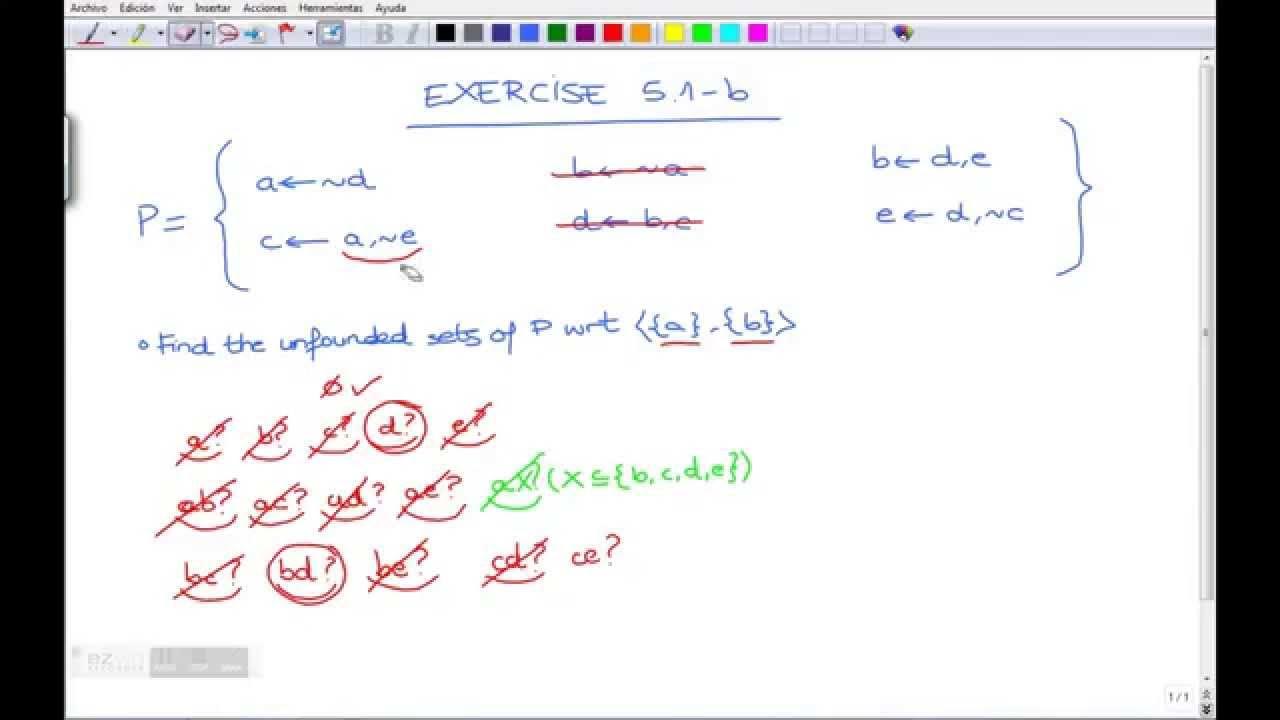 Archivo Edición Ver Insertar Acciones Herramientas Ayuda
B I
EXERCISE 5.1-b
P=
a←~d b←~a b←d,e
c←a,~e d←b,e e←d,~c
• Find the unfounded sets of P wrt ⟨{a},{b}⟩
ø✓
a? b? c? d? e?
ab? ac? ad? ae? aX? (X⊆{b,c,d,e})
bc? bd? be? cd? ce?
1/1